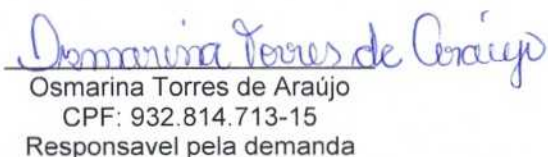 Osmarina Torres de Araújo
Osmarina Torres de Araújo
CPF: 932.814.713-15
Responsavel pela demanda